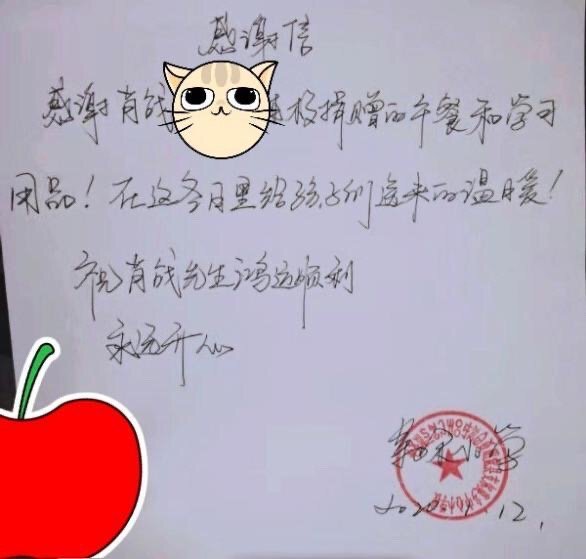 感谢信
感谢肖战 极捐赠的午餐和学习
用品！在这冬日里给孩子们送来的温暖！
祝肖战先生鸿运顺利
永远开心
小学
2020.1.12.